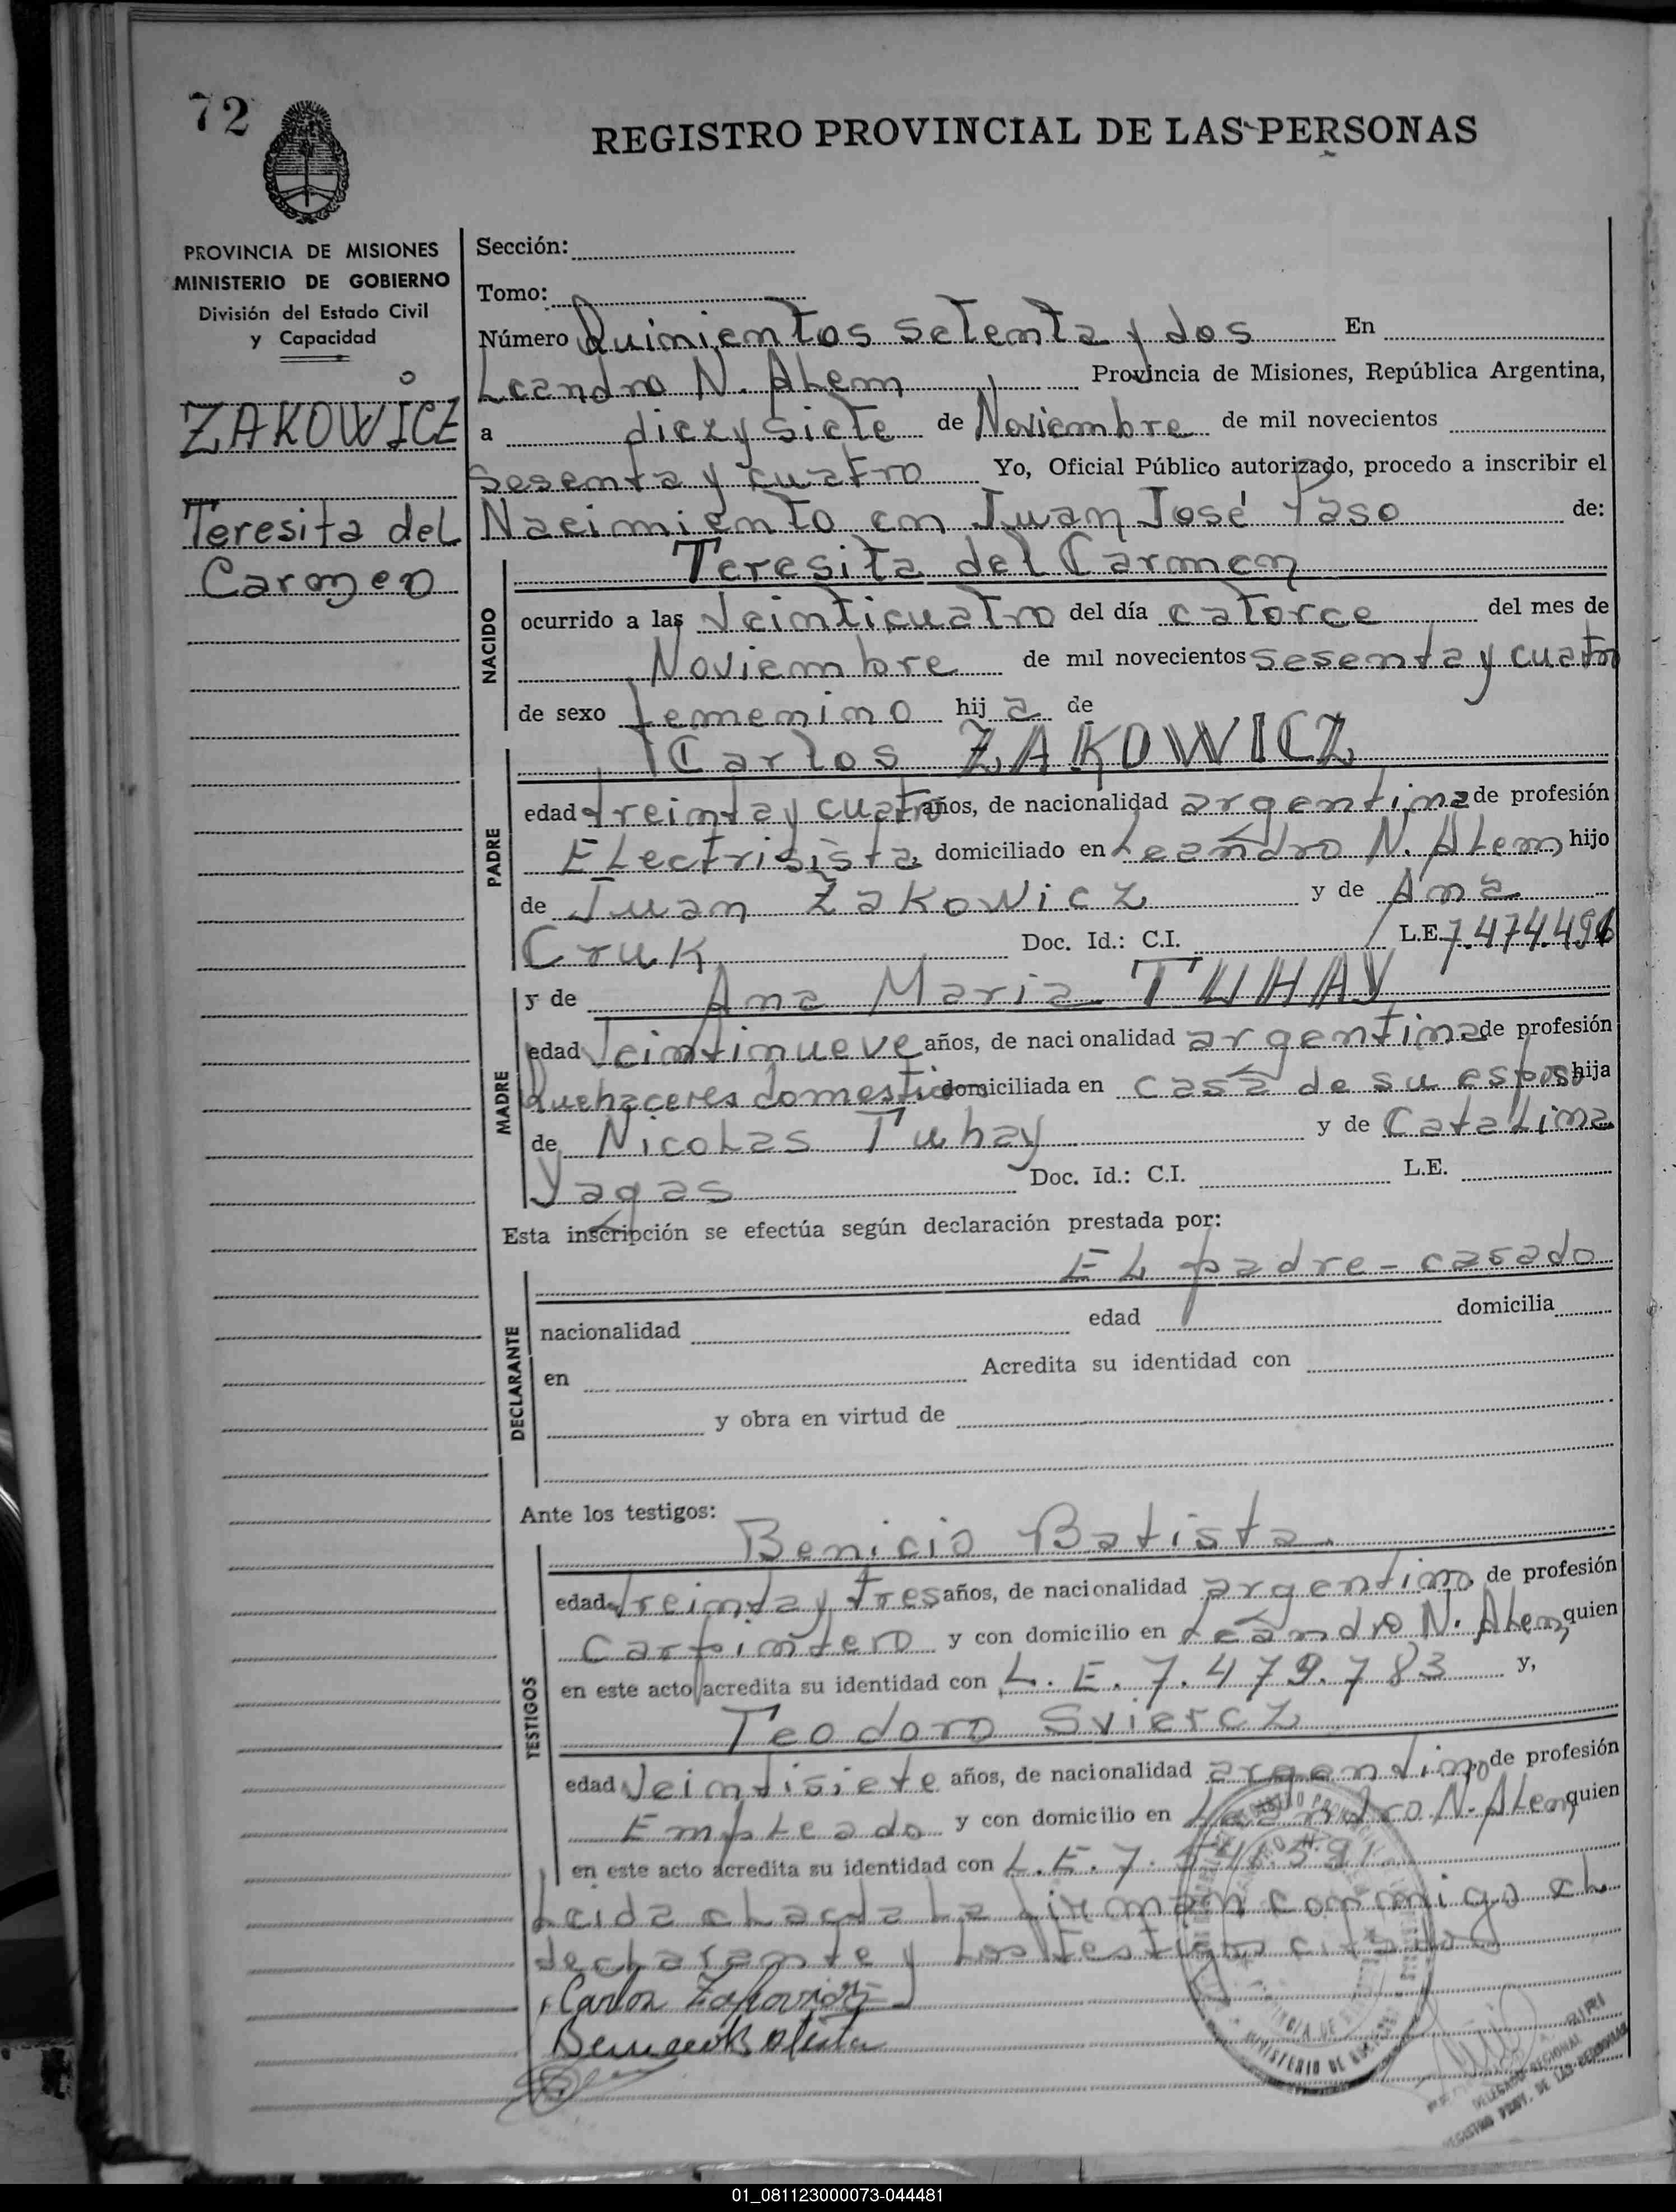 72
REGISTRO PROVINCIAL DE LAS PERSONAS
PROVINCIA DE MISIONES
MINISTERIO DE GOBIERNO
División del Estado Civil
y Capacidad
ZAKOWICZ
Teresita del
Carmen
Sección:
Tomo:
Número Quinientos setenta y dos En
Leandro N. Alem Provincia de Misiones, República Argentina,
a diez y siete de Noviembre de mil novecientos
sesenta y cuatro Yo, Oficial Público autorizado, procedo a inscribir el
Nacimiento en Juan José Paso de:
Teresita del Carmen
NACIDO
ocurrido a las veinticuatro del día catorce del mes de
Noviembre de mil novecientos sesenta y cuatro
de sexo femenino hij a de
Carlos ZAKOWICZ
PADRE
edad treinta y cuatro años, de nacionalidad argentina de profesión
Electrisista, domiciliado en Leandro N. Alem hijo
de Juan Zakowicz y de Ana
Cruk Doc. Id.: C.I. L.E. 7.474.496
y de Ana Maria TUHAY
MADRE
edad veintinueve años, de nacionalidad argentina de profesión
Quehaceres domesticos domiciliada en casa de su esposo hija
de Nicolas Tuhay y de Catalina
Yagas Doc. Id.: C.I. L.E.
Esta inscripción se efectúa según declaración prestada por:
El padre - casado
DECLARANTE
nacionalidad edad domicilia
en Acredita su identidad con
y obra en virtud de
Ante los testigos:
Benicio Batista
TESTIGOS
edad treinta y tres años, de nacionalidad argentino de profesión
Carpintero y con domicilio en Leandro N. Alem, quien
en este acto acredita su identidad con L.E. 7.479.783 y,
Teodoro Sviercz
edad veintisiete años, de nacionalidad argentino de profesión
Empleado y con domicilio en Leandro N. Alem, quien
en este acto acredita su identidad con L.E. 7.541.591
Leida el acta la firman conmigo el
declarante y los testigos citados
Carlos Zakowicz
Benicio Batista
MINISTERIO DE
DELEGADO REGIONAL
REGISTRO PROV. DE LAS PERSONAS
01_081123000073-044481